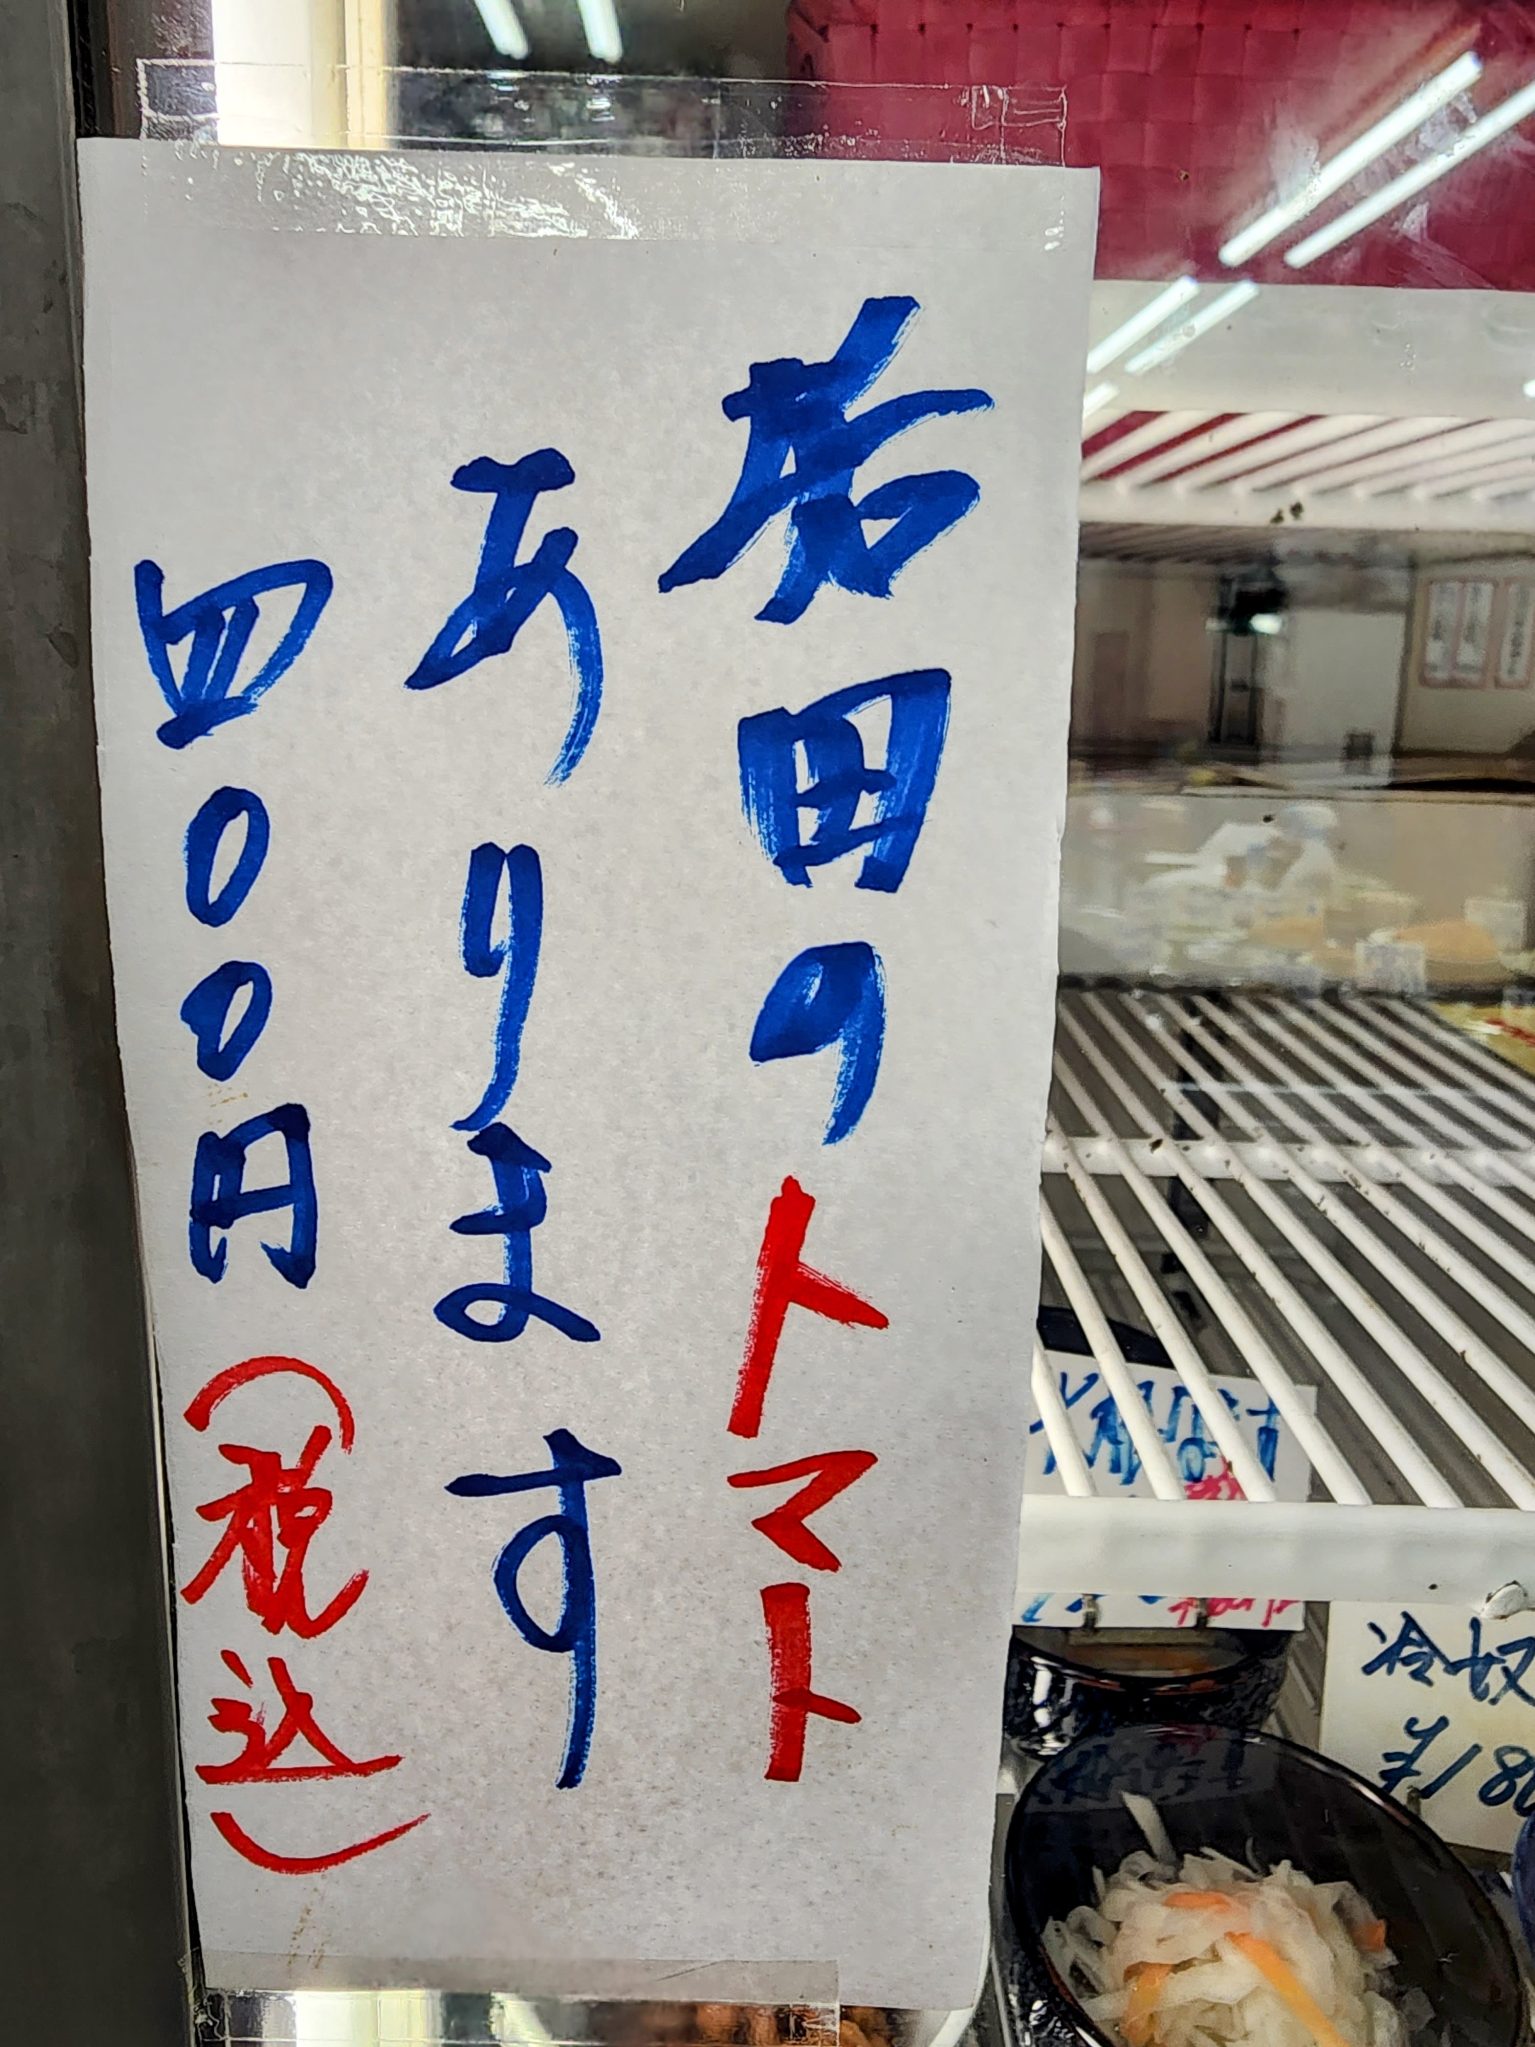 若田のトマト
あります
四〇〇円(税込)
冷奴
¥180